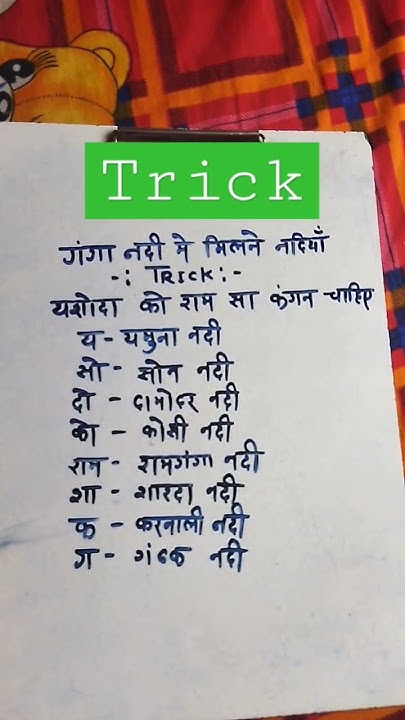 Trick
गंगा नदी मे मिलने नदियाँ
-: TRICK:-
यशोदा को राम सा कंगन चाहिए
य - यमुना नदी
सो - सोन नदी
दो - दामोदर नदी
को - कोसी नदी
राम - रामगंगा नदी
शा - शारदा नदी
क - करनाली नदी
ग - गंडक नदी